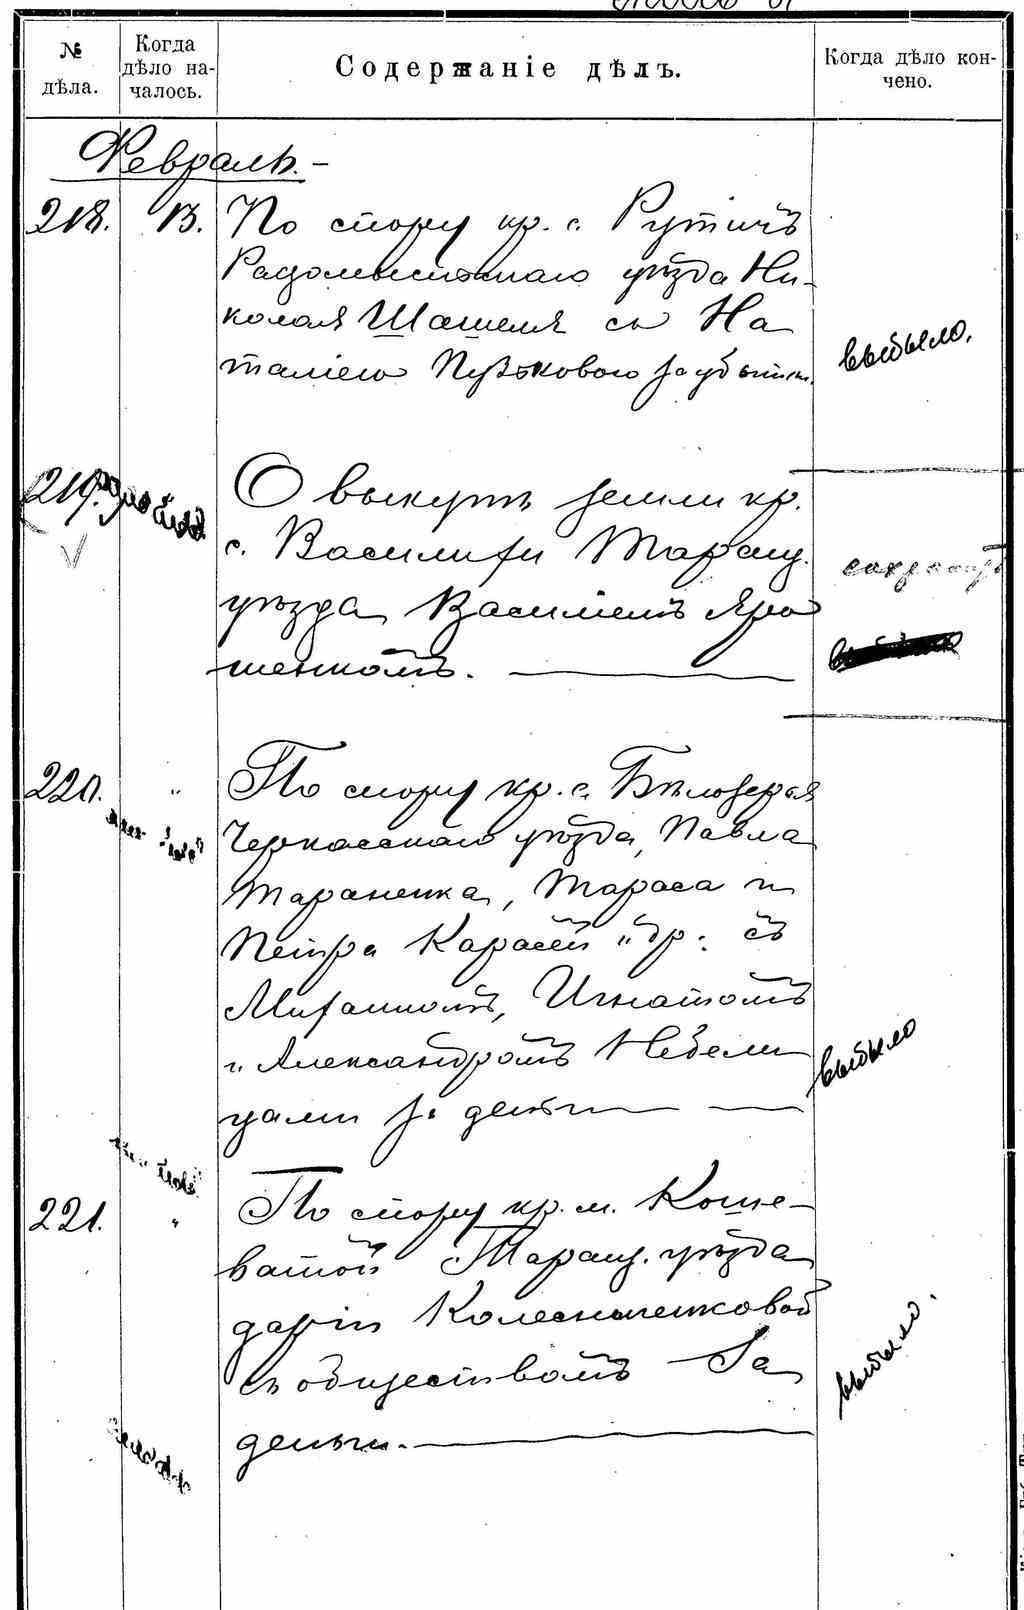 № дѣла.
Когда дѣло на-
чалось.
Содержаніе дѣлъ.
Когда дѣло кон-
чено.
Февраль.-
218. 13. По спору кр. с. Рутичъ
Радомысльскаго уѣзда Ни-
колая Шашеля съ На
таліею за убытк.
выбыло.
219. О выкупѣ земли кр.
с. Василихи Таращ.
уѣзда Василіемъ Яро
шенкомъ.
сохранить
220. " По спору кр. с. Бѣлозерья
Черкасскаго уѣзда, Павла
Тараненка, Тараса и
Петра Карасей и др. съ
Игнатомъ
и Александромъ Небели
цами за деньги
выбыло
221. " По спору кр. м. Коше-
ватой Таращ. уѣзда
Даріи Колесниченковой
съ обществомъ за
деньги.
выбыло.